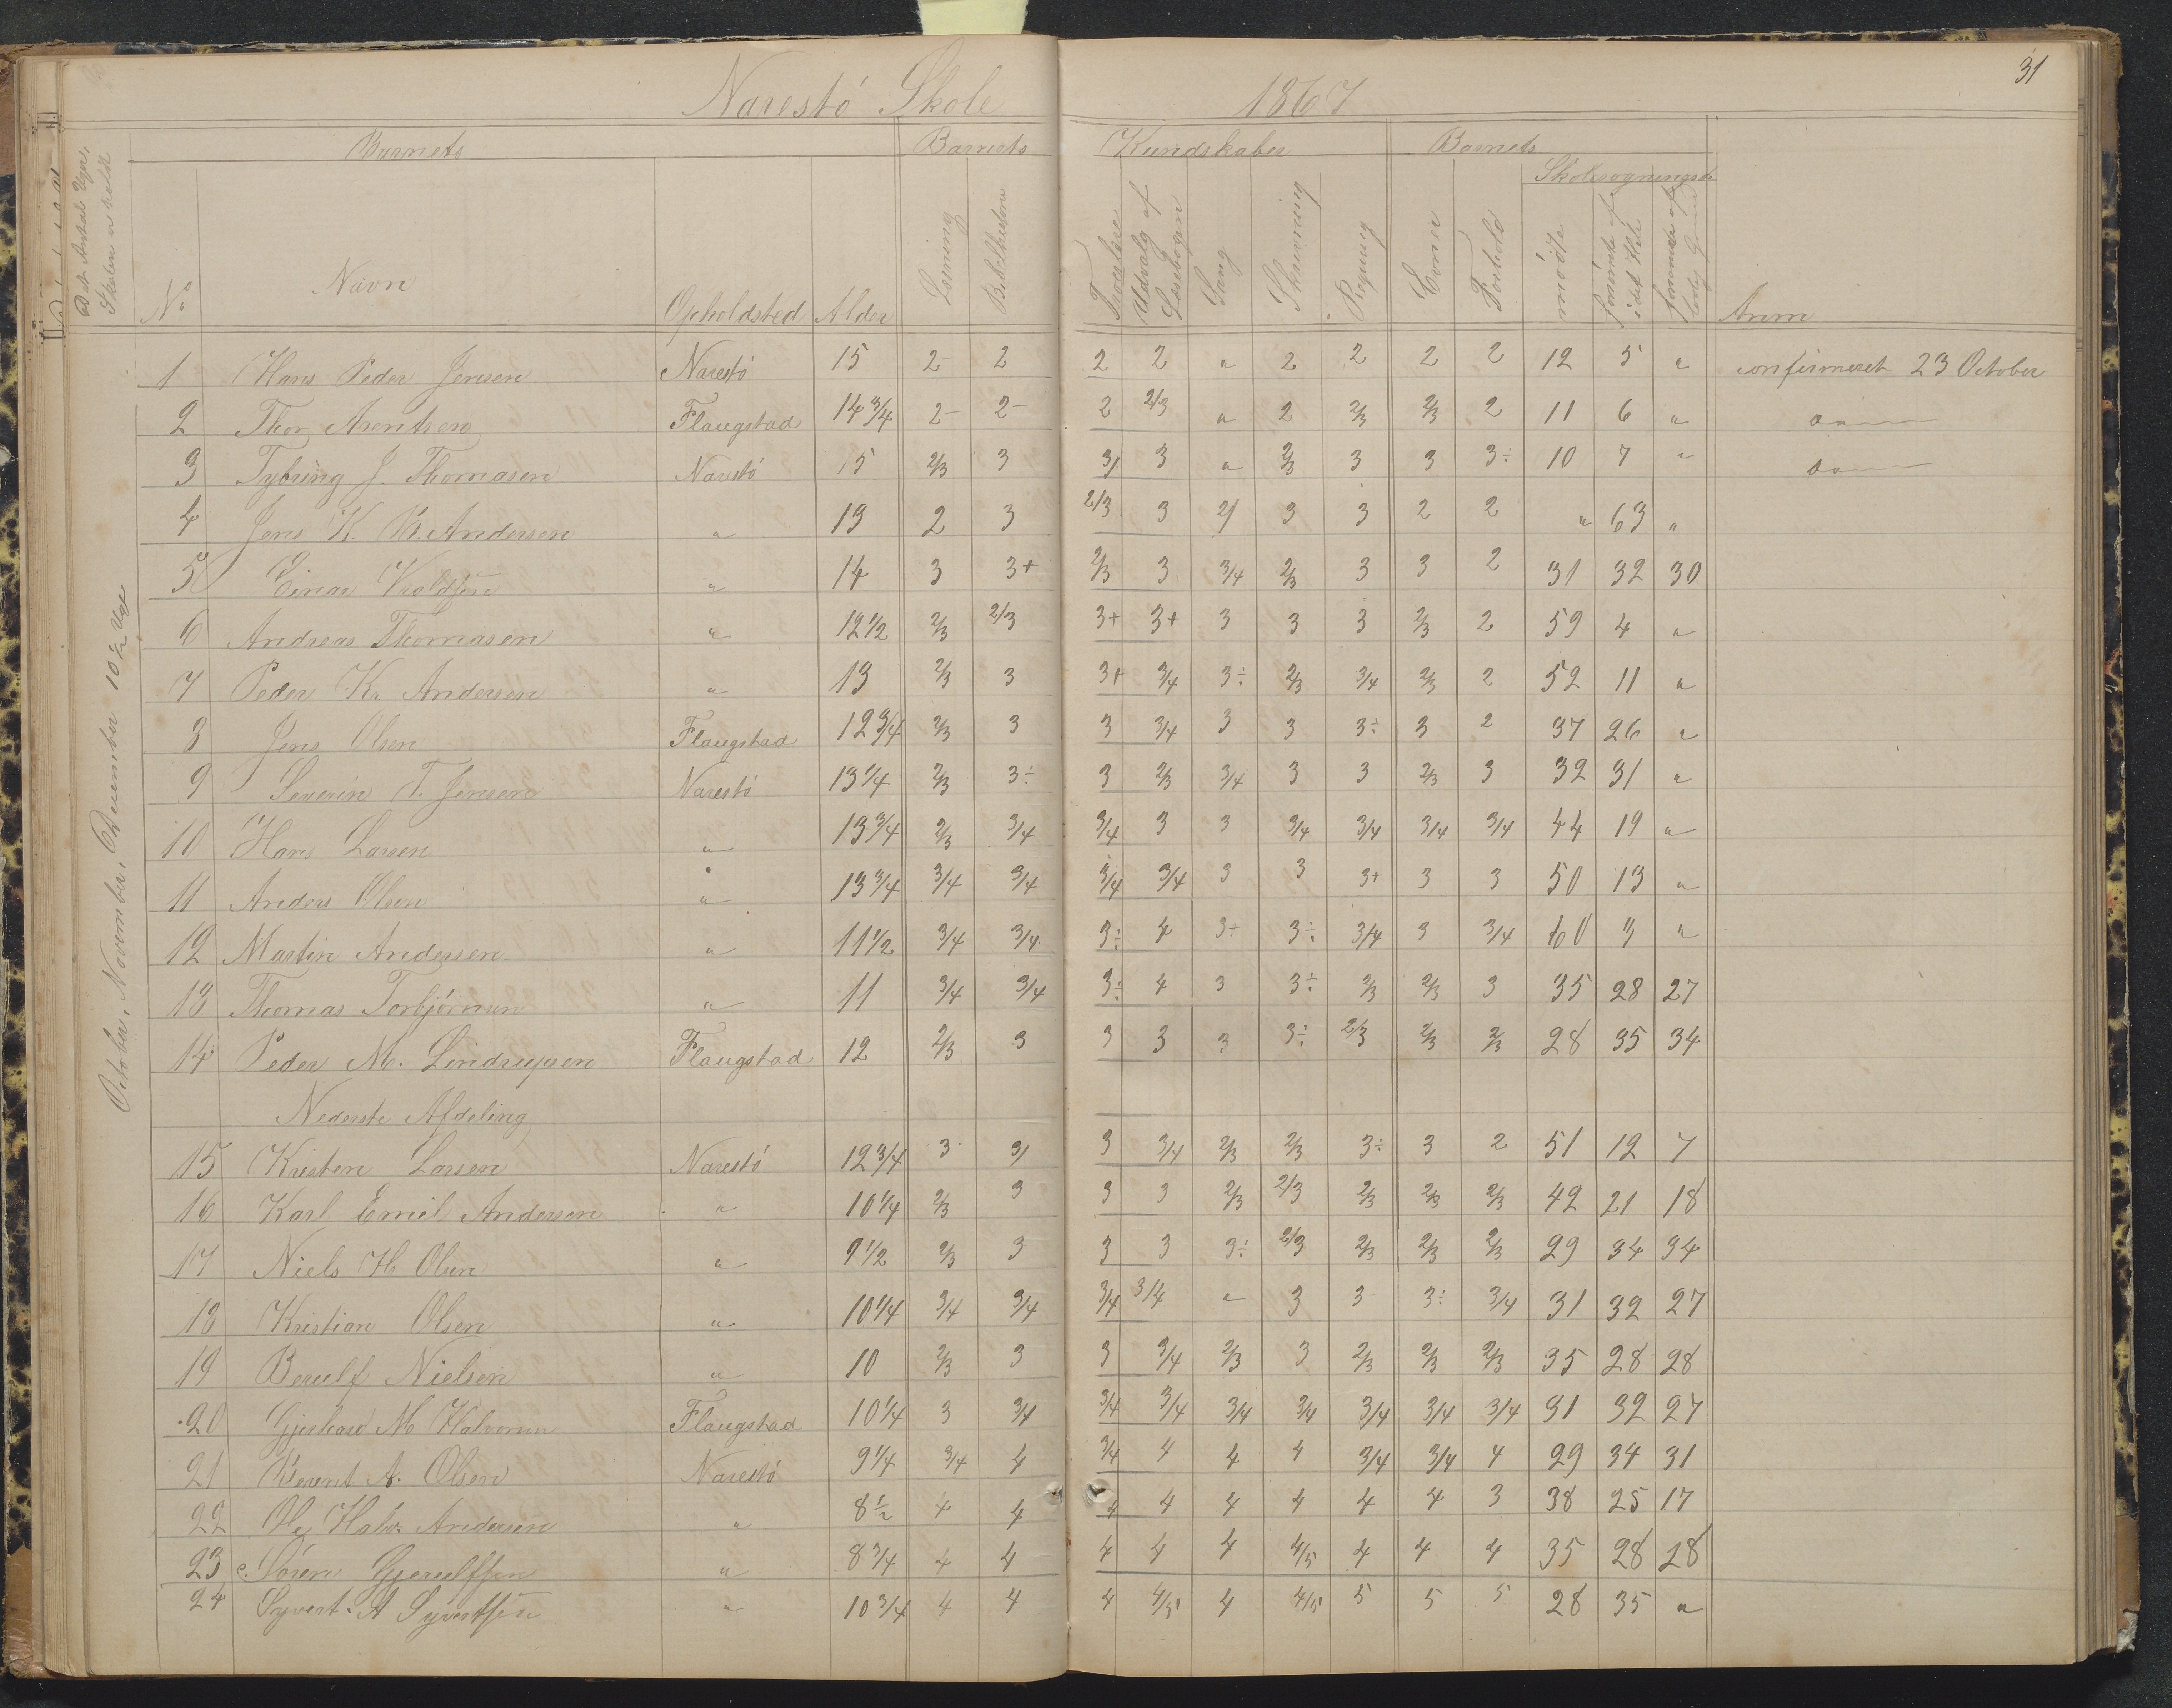 31
Narestö Skole 1867
Barnets Barnets Kundskaber Barnets
Skolesøgningsdage
Det Antal Uger, Skolen er holdt
No Navn Opholdsted Alder Læsning Bibelhistorie Troeslære Udvalg af Læsebogen Sang Skrivning Regning Evner Forhold mödte forsömte i det Hele forsömte af lovlig Grund Anm
October, November, December 10 1/2 Uge
1 Hans Peder Jensen Narestö 15 2- 2 2 2 " 2 2 2 2 12 5 " confirmeret 23 October
2 Thor Arentsen Flaugstad 14 3/4 2- 2- 2 2/3 " 2 2/3 2/3 2 11 6 "
3 Tybring J. Thomasen Narestö 15 2/3 3 3/ 3 " 2/3 3 3 3÷ 10 7 "
4 Jens K. B. Andersen " 13 2 3 2/3 3 2/ 3 3 2 2 " 63 "
5 Einar " 14 3 3+ 2/3 3 3/4 2/3 3 3 2 31 32 30
6 Andreas Thomasen " 12 1/2 2/3 2/3 3+ 3+ 3 3 3 2/3 2 59 4 "
7 Peder Kr. Andersen " 13 2/3 3 3+ 3/4 3÷ 2/3 3/4 2/3 2 52 11 "
8 Jens Olsen Flaugstad 12 3/4 2/3 3 3 3/4 3 3 3÷ 3 2 37 26 "
9 Severin T. Jensen Narestö 13 1/4 2/3 3÷ 3 2/3 3/4 3 3 2/3 3 32 31 "
10 Hans Larsen " 13 3/4 2/3 3/4 3/4 3 3 3/4 3/4 3/4 3/4 44 19 "
11 Anders Olsen " 13 3/4 3/4 3/4 3/4 3/4 3 3 3+ 3 3 50 13 "
12 Martin Andersen " 11 1/2 3/4 3/4 3÷ 4 3÷ 3÷ 3/4 3 3/4 60 3 "
13 Thomas Torbjörnsen " 11 3/4 3/4 3÷ 4 3 3÷ 2/3 2/3 3 35 28 27
14 Peder M. Lindrupsen Flaugstad 12 2/3 3 3 3 3 3÷ 2/3 2/3 2/3 28 35 34
Nederste Afdeling
15 Kristen Larsen Narestö 12 3/4 3 3/ 3 3/4 2/3 2/3 3÷ 3 2 51 12 7
16 Karl Emil Andersen " 10 1/4 2/3 3 3 3 2/3 2/3 2/3 2/3 2/3 42 21 18
17 Niels H. Olsen " 9 1/2 2/3 3 3 3 3÷ 2/3 2/3 2/3 2/3 29 34 34
18 Kristian Olsen " 10 1/4 3/4 3/4 3/4 3/4 " 3 3 3÷ 3/4 31 32 27
19 Bereulf Nielsen " 10 2/3 3 3 3/4 2/3 3 2/3 2/3 2/3 35 28 28
20 Gjerhard M Halvorsen Flaugstad 10 1/4 3 3/4 3/4 3/4 3/4 3/4 3/4 3/4 3/4 31 32 27
21 Berent A. Olsen Narestö 9 1/4 3/4 4 3/4 4 4 4 3/4 3/4 4 29 34 31
22 Ole Halv. Andersen " 8 1/2 4 4 4 4 4 4 4 4 3 38 25 17
23 Sören Gjereulfsen " 8 3/4 4 4 4 4 4 4/5 4 4 4 35 28 28
24 Syvert A Syvertsen " 10 3/4 4 4 4 4/5 4 4/5 5 5 5 28 35 "